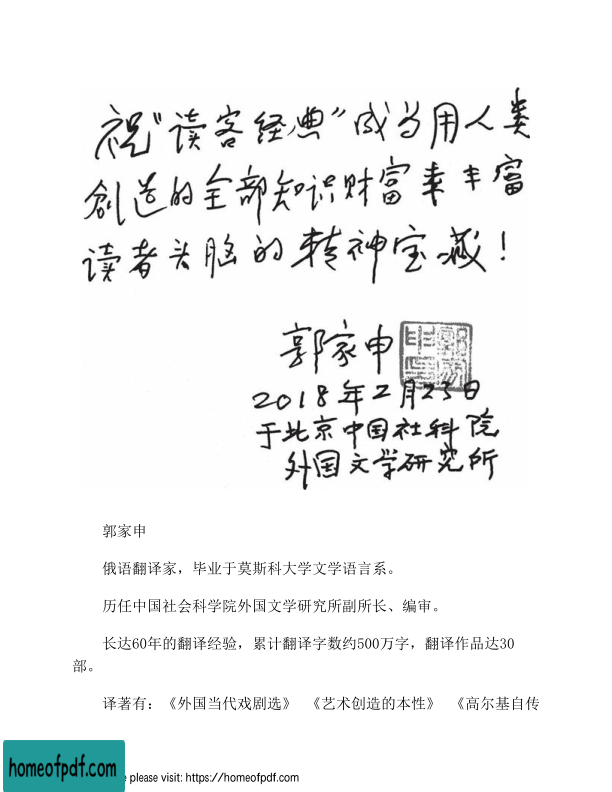 祝“读客经典”成为用人类
創造的全部知识财富来丰富
读者头脑的精神宝藏！
郭家申
2018年2月23日
于北京中国社科院
外国文学研究所
郭家申
俄语翻译家，毕业于莫斯科大学文学语言系。
历任中国社会科学院外国文学研究所副所长、编审。
长达60年的翻译经验，累计翻译字数约500万字，翻译作品达30
部。
译著有：《外国当代戏剧选》 《艺术创造的本性》 《高尔基自传
homeofpdf.com
e please visit: https://homeofpdf.com